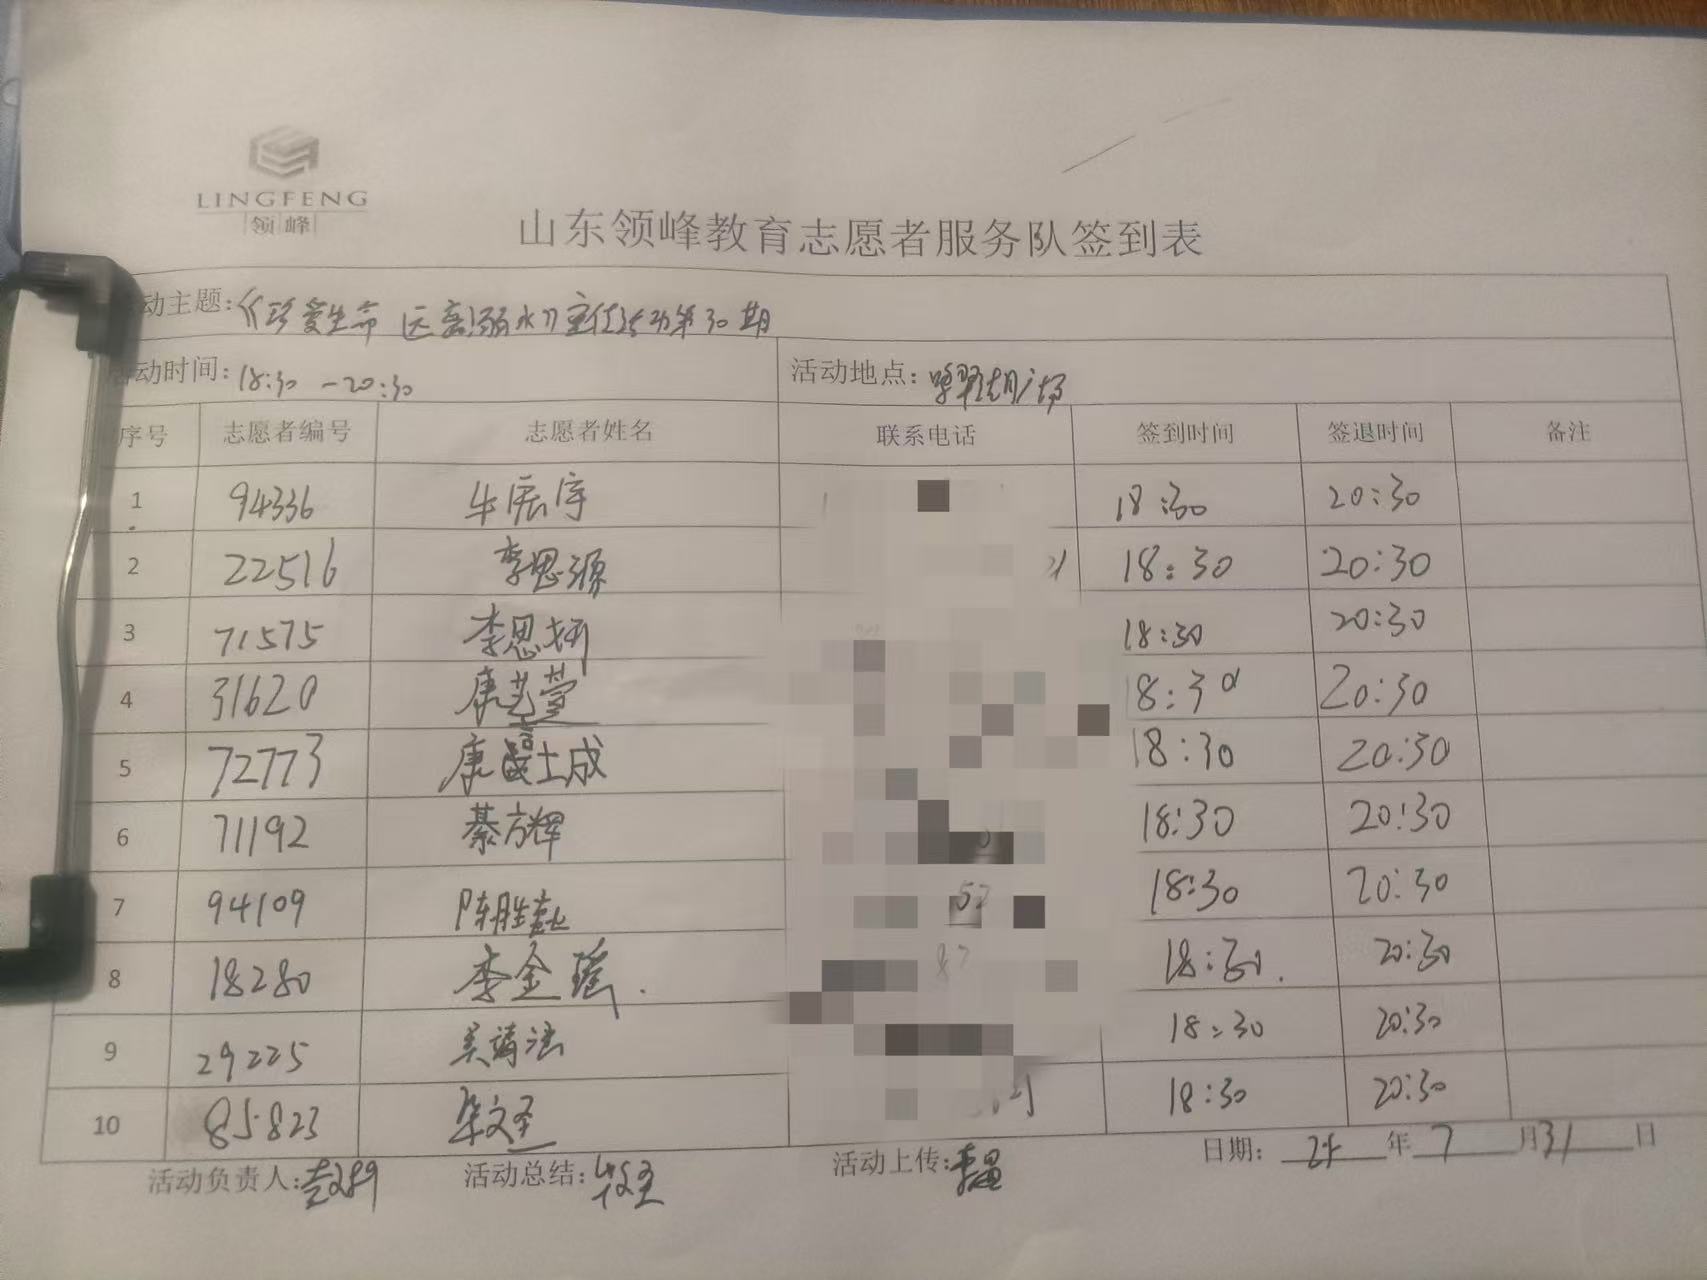 LINGFENG
领峰
山东领峰教育志愿者服务队签到表
动主题:《珍爱生命 远离溺水》宣传活动第30期
活动时间:18:30 -20:30 活动地点:
序号 志愿者编号 志愿者姓名 联系电话 签到时间 签退时间 备注
1 94336 牛宸宇 18:30 20:30
2 22516 李思源 18:30 20:30
3 71575 李思妍 18:30 20:30
4 31620 康艺萱 18:30 20:30
5 72773 康 18:30 20:30
6 71192 綦方辉 18:30 20:30
7 94109 陈胜 52 18:30 20:30
8 18280 李金瑶. 87 18:30. 20:30
9 29225 吴靖 18:30 20:30
10 85823 牟文圣 18:30 20:30
活动负责人: 活动总结: 活动上传: 日期: 24 年 7 月31 日